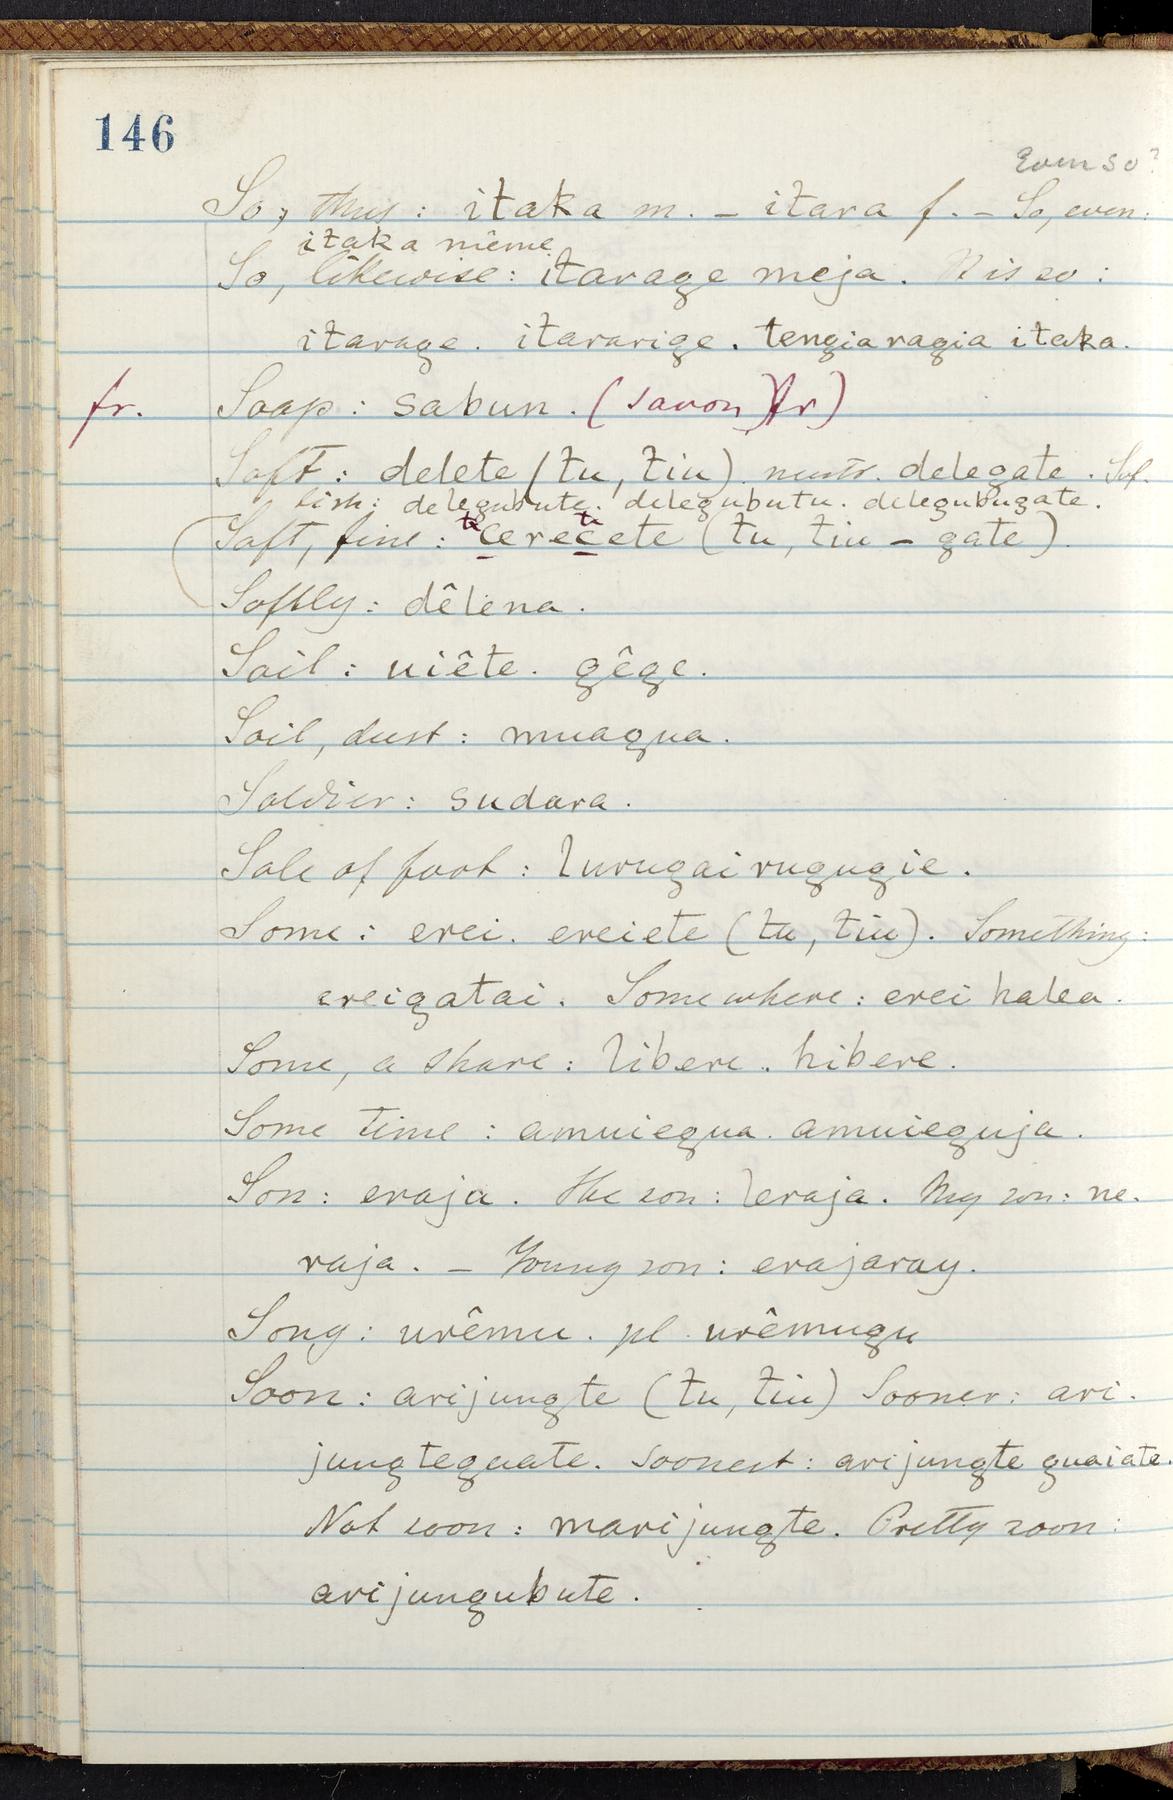 146
Even so?
So, thus: itaka m. – itara f. – So, even:
itaka niême
So, likewise: itarage meja. It is so:
itarage. itararige. tengiaragia itaka.
fr. Soap: sabun. (savon)(fr)
Soft: delete (tu, tiu) neutr. delegate. Sof-
tish: delegubute. delegubutu. delegubugate.
te te
Soft, fine: cerecete (tu, tiu – gate).
Softly: dêlena.
Soil: uiête. gêge.
Soil, dust: muagua.
Soldier: sudara.
Sole of foot: lurugairugugie.
Some: erei. ereiete (tu, tiu). Something:
ereigatai. Somewhere: erei halea.
Some, a share: libere. hibere.
Some time: amuiegua. amuieguja.
Son: eraja. The son: leraja. My son: ne-
raja. – Young son: erajaray.
Song: urêmu. pl. urêmugu
Soon: arijungte (tu, tiu) Sooner: ari-
jungteguate. Soonest: arijungte guaiate.
Not soon: marijungte. Pretty soon:
arijungubute.